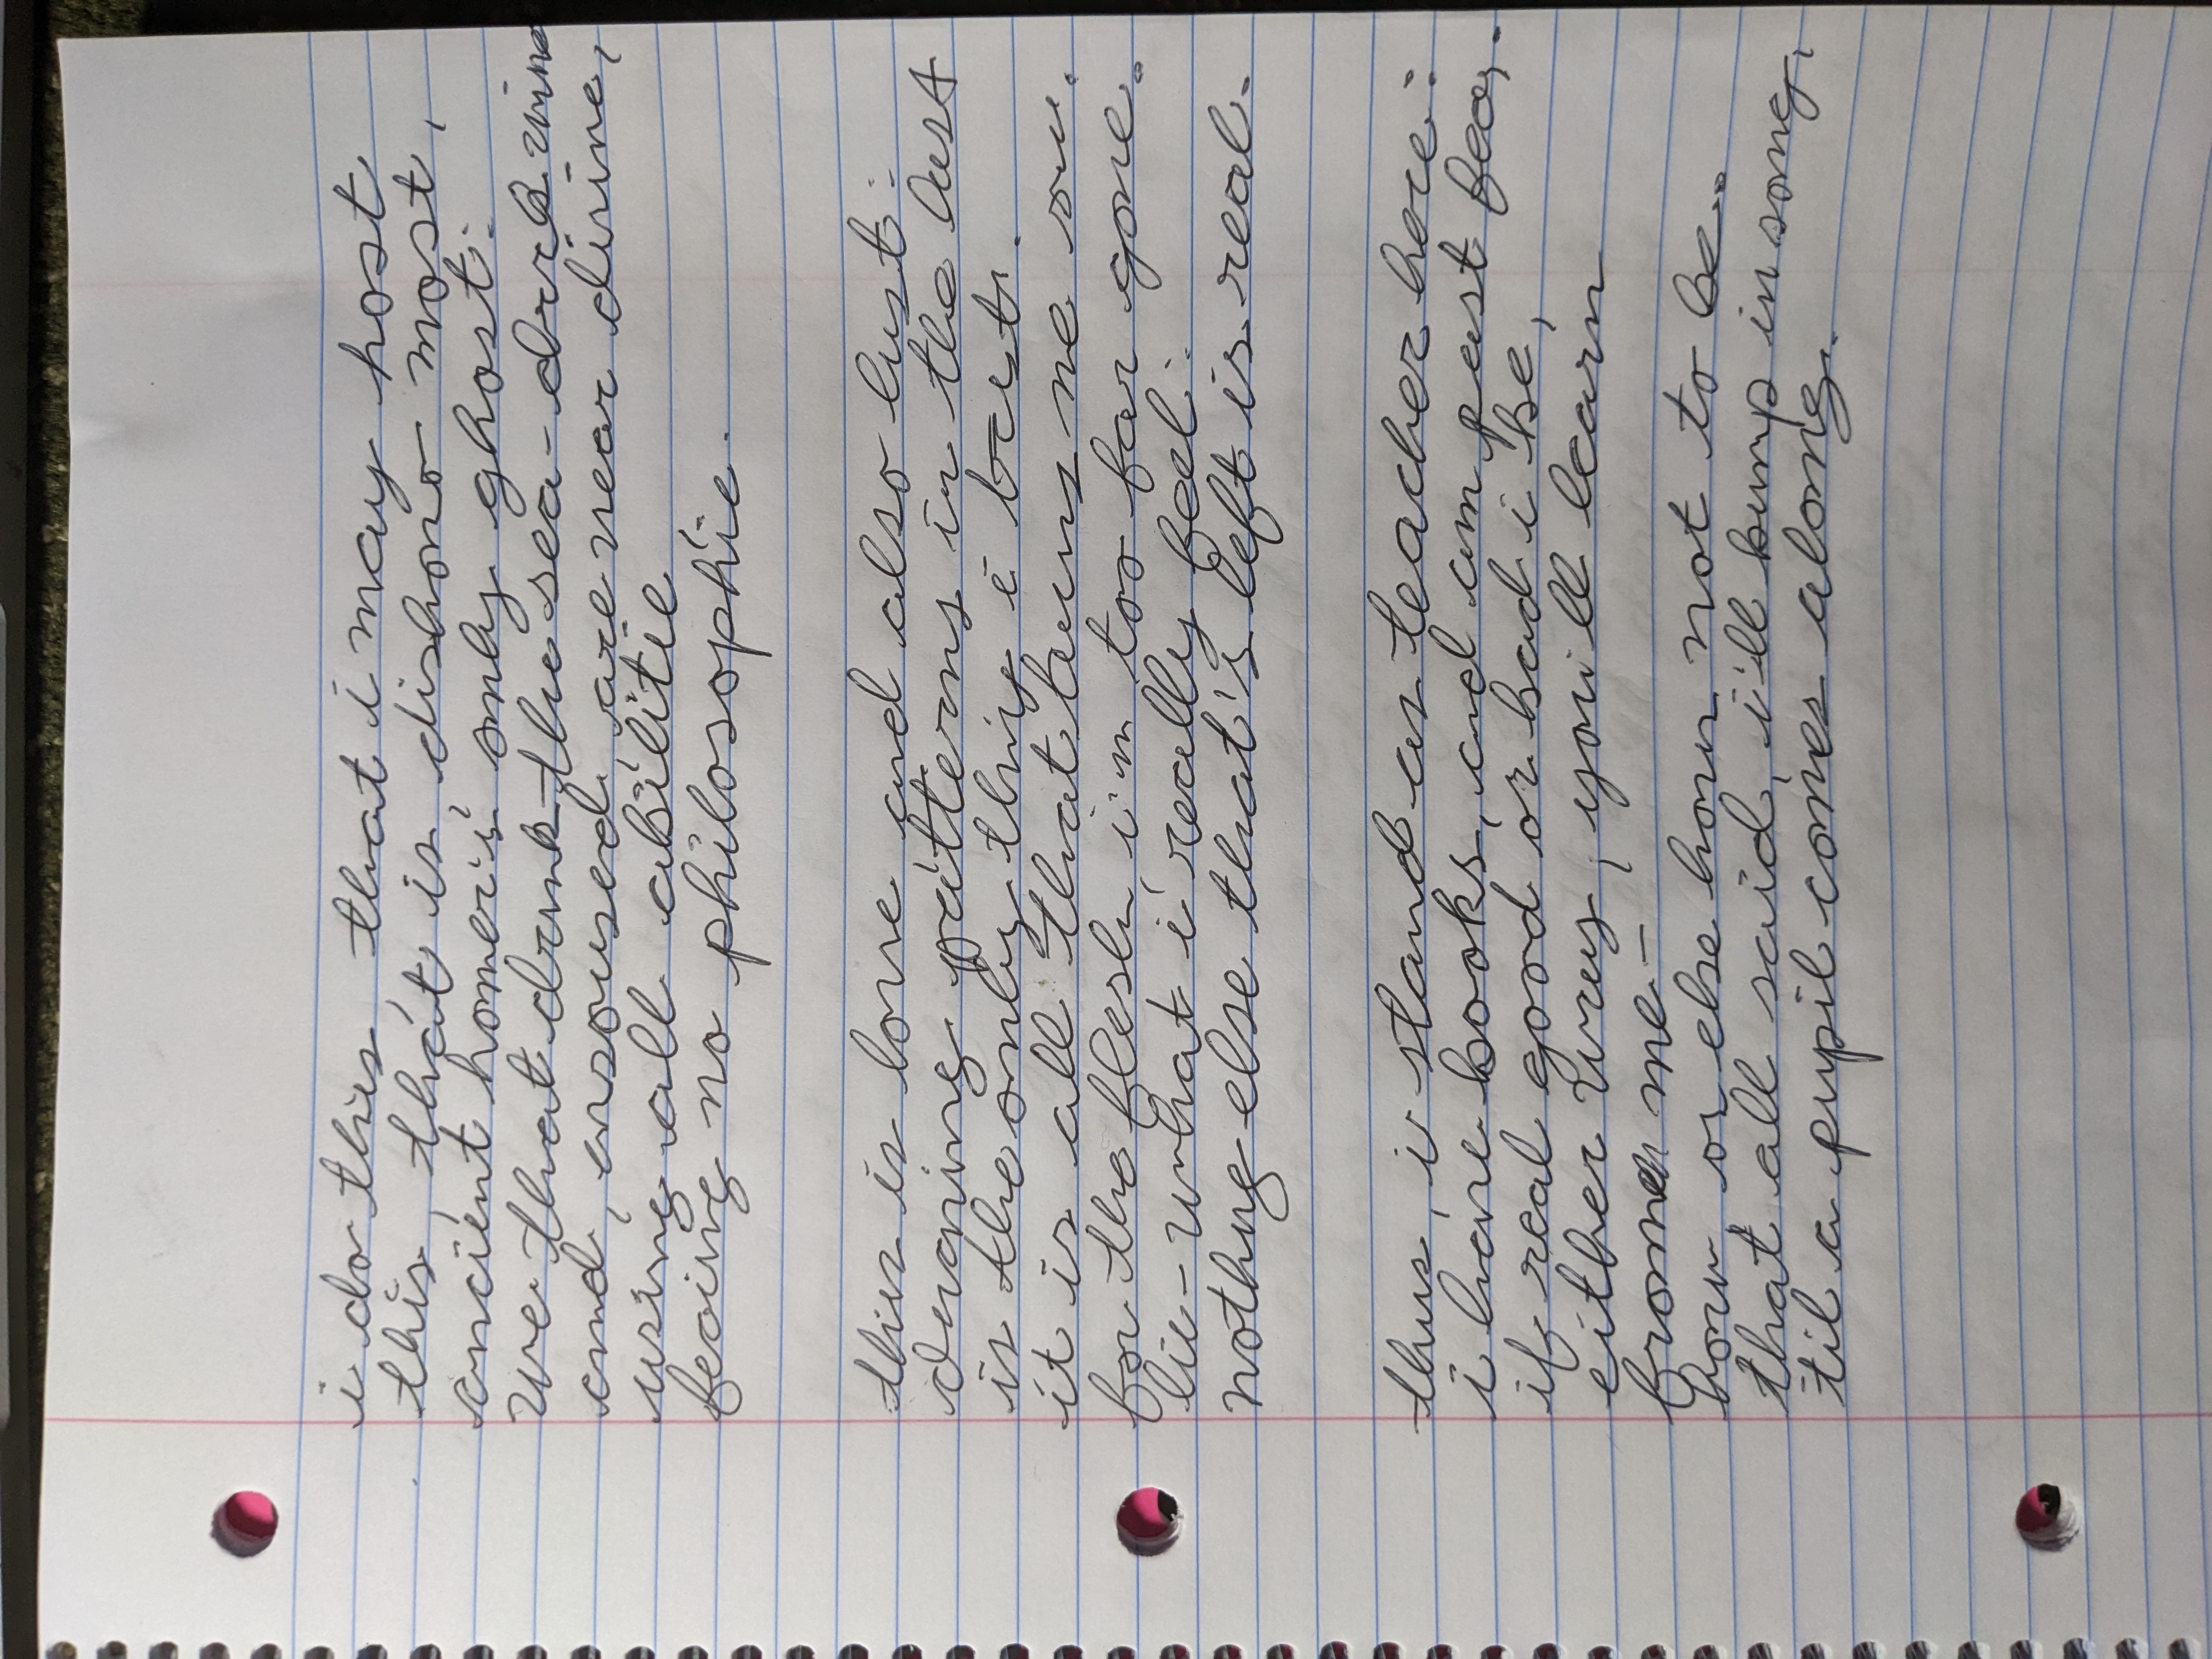 i do this that i may host
this, that is dishono-most,
ancient homer's only ghost.
we that drink the sea-dark wine
and, aroused, are near divine,
using all abilitie
feeing no philosophie.
this is love and also lust.
craning patterns in the last
is the only thing i trust.
it is all that turns me on.
for the flesh i'm too far gone.
lie - what i really feel.
nothing else that's left is real.
thus, i stand as teacher here.
i have books, and am past fear.
if real good or bad i be,
either way, you'll learn
from me -
how or else how not to be.
that all said, i'll bump in song,
til a pupil comes along.